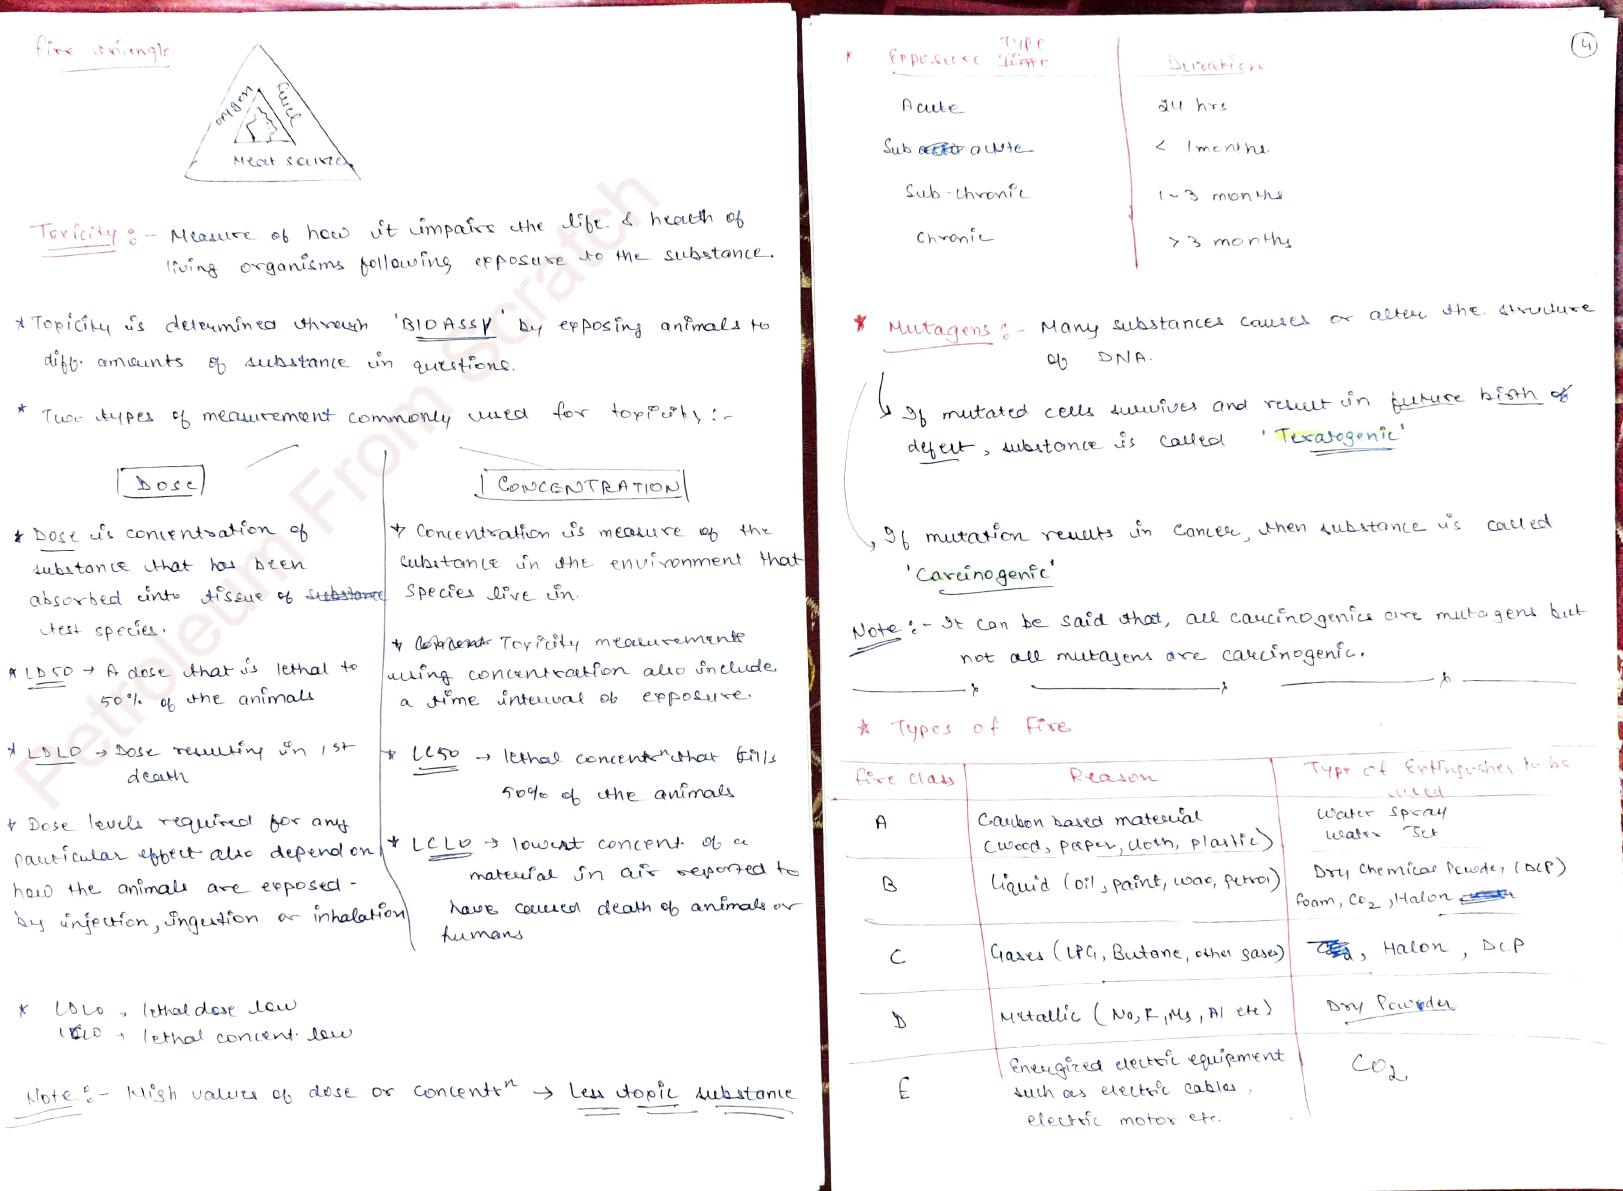 Fire triangle
oxygen
fuel
Heat source
Toxicity :- Measure of how it impairs the life & health of
living organisms following exposure to the substance.
* Toxicity is determined through 'BIOASSY' by exposing animals to
diff. amounts of substance in questions.
* Two types of measurement commonly used for toxicity :-
DOSE
* Dose is concentration of
substance that has been
absorbed into tissue of substance
test species.
* LD50 → A dose that is lethal to
50% of the animals
* LDLO → Dose resulting in 1st
death
* Dose levels required for any
particular effect also depend on
how the animals are exposed -
by injection, ingestion or inhalation
CONCENTRATION
* Concentration is measure of the
substance in the environment that
species live in.
* Toxicity measurements
using concentration also include
a time interval of exposure.
* LC50 → lethal concentrⁿ that kills
50% of the animals
* LCLO → lowest concent of a
material in air reported to
have caused death of animals or
humans
* LDLO → lethal dose low
LCLO → lethal concent. low
Note :- High values of dose or concentrⁿ → Less toxic substance
Petroleum From Scratch
4
* Exposure Time TYPE Duration
Acute 24 hrs
Sub acute < 1 months.
Sub-chronic 1-3 months
Chronic > 3 months
* Mutagens :- Many substances causes or alter the structure
of DNA.
↳ If mutated cells survives and result in future birth of
defect, substance is called 'Teratogenic'
↳ If mutation results in Cancer, then substance is called
'Carcinogenic'
Note :- It can be said that, all carcinogenics are mutagens but
not all mutagens are carcinogenic.
* Types of Fire
Fire Class Reason Type of Extinguisher to be
used
A Carbon based material Water spray
(wood, paper, cloth, plastic) Water Jet
B Liquid (oil, paint, wax, petrol) Dry Chemical Powder (DCP)
foam, CO2, Halon
C Gases (LPG, Butane, other gases) , Halon, DCP
D Metallic (Na, K, Mg, Al etc) Dry Powder
E Energized electric equipment CO2
such as electric cables,
electric motor etc.